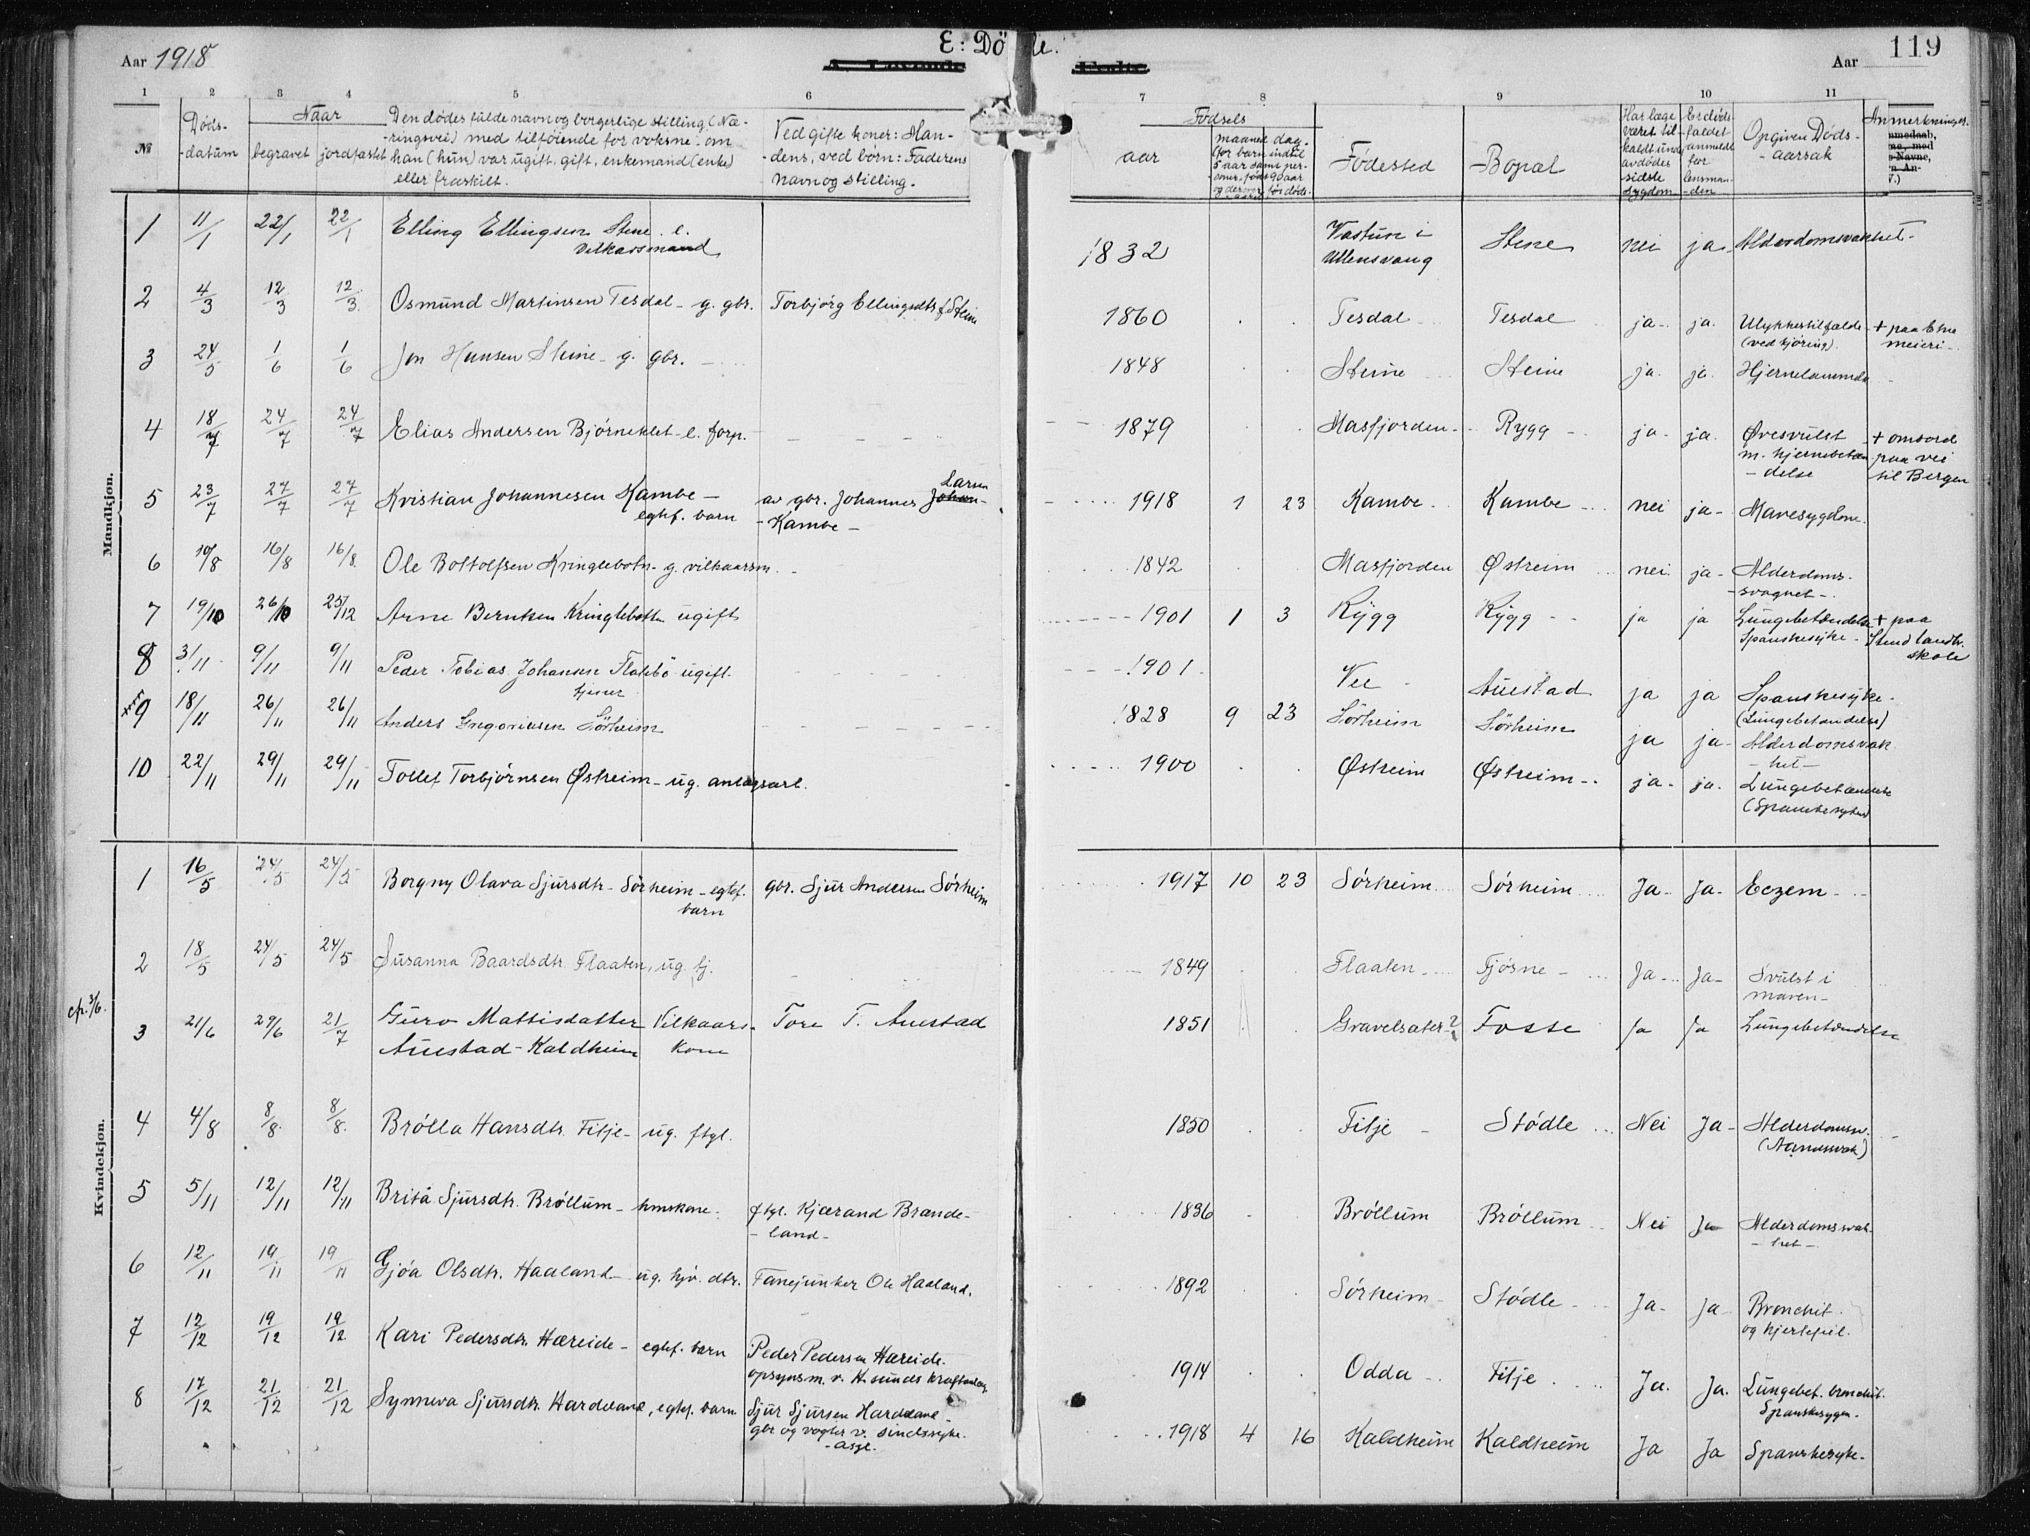 Aar 1918
E: Døde.
119
Aar
1 2 3 4 5 6 7 8 9 10 11
№
Døds-
-datum
Naar
begravet jordfæstet
Den dødes fulde navn og borgerlige stilling (Næ-
-ringsvei) med tilføiende for voksne: om
han (hun) var ugift, gift, enkemand (enke)
eller fraskilt.
Ved gifte koner: Man-
-dens, ved børn: Faderens
navn og stilling.
Fødsels
aar
maaned dag
Fødested
Bopæl
Har læge
været til-
kaldt und.
avdødes
sidste
sygdom
Er døds-
faldet
anmeldt
for
lensman-
den
Opgiven Døds-
-aarsak
Anmerkninger.
Mandkjøn.
1 11/1 22/1 22/1 Elling Ellingsen Stene. e.
Vilkaarsmand
1832 Vastun i
Ullensvang Stene nei ja Alderdomsvakhet
2 4/3 12/3 12/3 Osmund Martinsen Tesdal - g. gbr. Torbjørg Ellingsdtr f. Steine
1860 Tesdal Tesdal ja ja Ulykkestilfælde
(ved kjøring) + paa Etne
meieri
3 24/5 1/6 1/6 Jon Hansen Steine - g. gbr.
1848 Steine Steine ja ja
4 18/7 24/7 24/7 Elias Andersen Bjørneklet - e. forp.
1879 Masfjorden Rygg ja ja Øresvulst
m. hjernebetæn
-delse + ombord
paa vei
til Bergen
5 23/7 27/7 27/7 Kristian Johannesen Kambe -
egtef. barn av gbr. Johannes Larsen
-Kambe-
1918 1 23 Kambe Kambe nei ja Mavesygdom
6 10/8 16/8 16/8 Ole Bottolfsen Kringlebotn - g. vilkaarsm.
1842 Masfjorden Østreim nei ja Alderdoms-
-svaghet-
7 19/10 26/10 25/12 Arne Berntsen Kringlebotten ugift
1901 1 3 Rygg Rygg ja ja Lungebetændelse
Spanskesyke + paa
Stend landbr.
skole
8 3/11 9/11 9/11 Peder Tobias Johansen Flatebø ugift
tjener
1901 Vee Auestad ja ja Spanskesyke
(Lungebetændelse)
9 18/11 26/11 26/11 Anders Gregoriusen Sørheim
1828 9 23 Sørheim Sørheim ja ja Alderdomsvak
-het-
10 22/11 29/11 29/11 Tollef Torbjørnsen Østreim - ug. anlægsarb.
1900 Østreim Østreim ja ja Lungebetændelse
(Spanskesyken)
Kvindekjøn.
1 16/5 24/5 24/5 Borgny Olava Sjursdtr - Sørheim - egtef.
barn gbr. Sjur Andersen Sørheim
1917 10 23 Sørheim Sørheim Ja Ja Eczem
2 18/5 24/5 24/5 Susanna Baardsdtr. Flaaten, ug. tj.
1849 Flaaten Tjøsne Ja Ja Svulst i
maven
3/6
3 21/6 29/6 21/7 Guro Mattisdatter Vilkaars- Tore T. Auestad
Auestad - Kaldheim kone
1851 Gravelsæter? Fosse Ja Ja Lungebetændelse
4 4/8 8/8 8/8 Brølla Hansdtr. Fitje - ug. ftgl.
1850 Fitje Stødle Nei Ja Alderdomsv.
(Aandssvak)
5 5/11 12/11 12/11 Brita Sjursdtr. Brøllum - hmskone. ftgl. Kjærand Brande-
-land-
1836 Brøllum Brøllum Nei Ja Alderdomssvak
-het-
6 12/11 19/11 19/11 Gjøa Olsdtr. Haaland - ug. hjv. dtr. Fanejunker Ole Haaland.
1892 Sørheim Stødle Ja ja Bronchit
og hjertefeil.
7 12/12 19/12 19/12 Kari Pedersdtr. Hæreide - egtef. barn Peder Pedersen Hæreide.
opsynsm. v. H.sunds kraftanlæg
1914 Odda Fitje Ja. Ja. Lungebet. bronchit.
Spanskesygen.
8 17/12 21/12 21/12 Synneva Sjursdtr. Hardeland, egtef. barn Sjur Sjursen Hardeland -
gbr og vogter v. sindssyke-
-asyl.
1918 4 16 Kaldheim Kaldheim Ja Ja Spanskesyke.